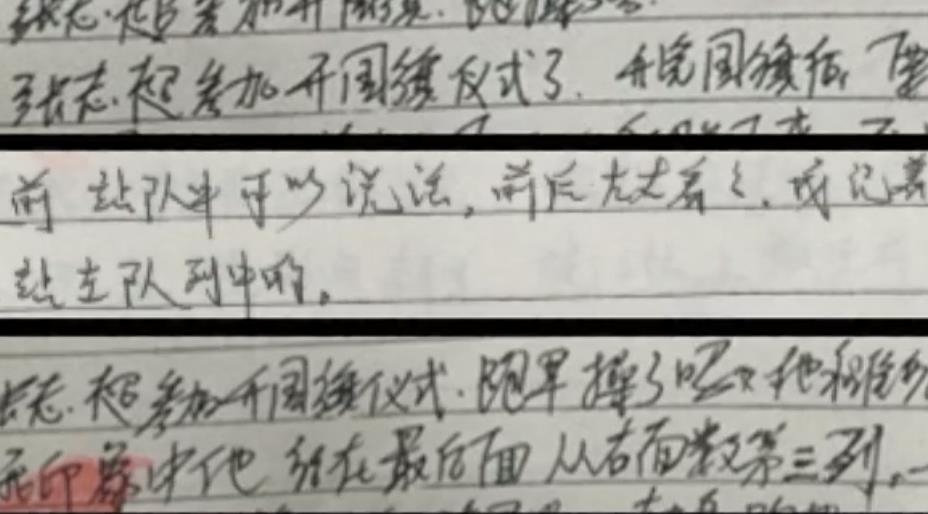 张志超参加开国旗仪式
张志超参加升国旗仪式了.升完国旗后,
前 站队中可以说话,前后左右看看,我记着
站在队列中的。
张志超参加升国旗仪式.跑早操了吧？他和
我印象中他 站在最后面从右面数第三列,